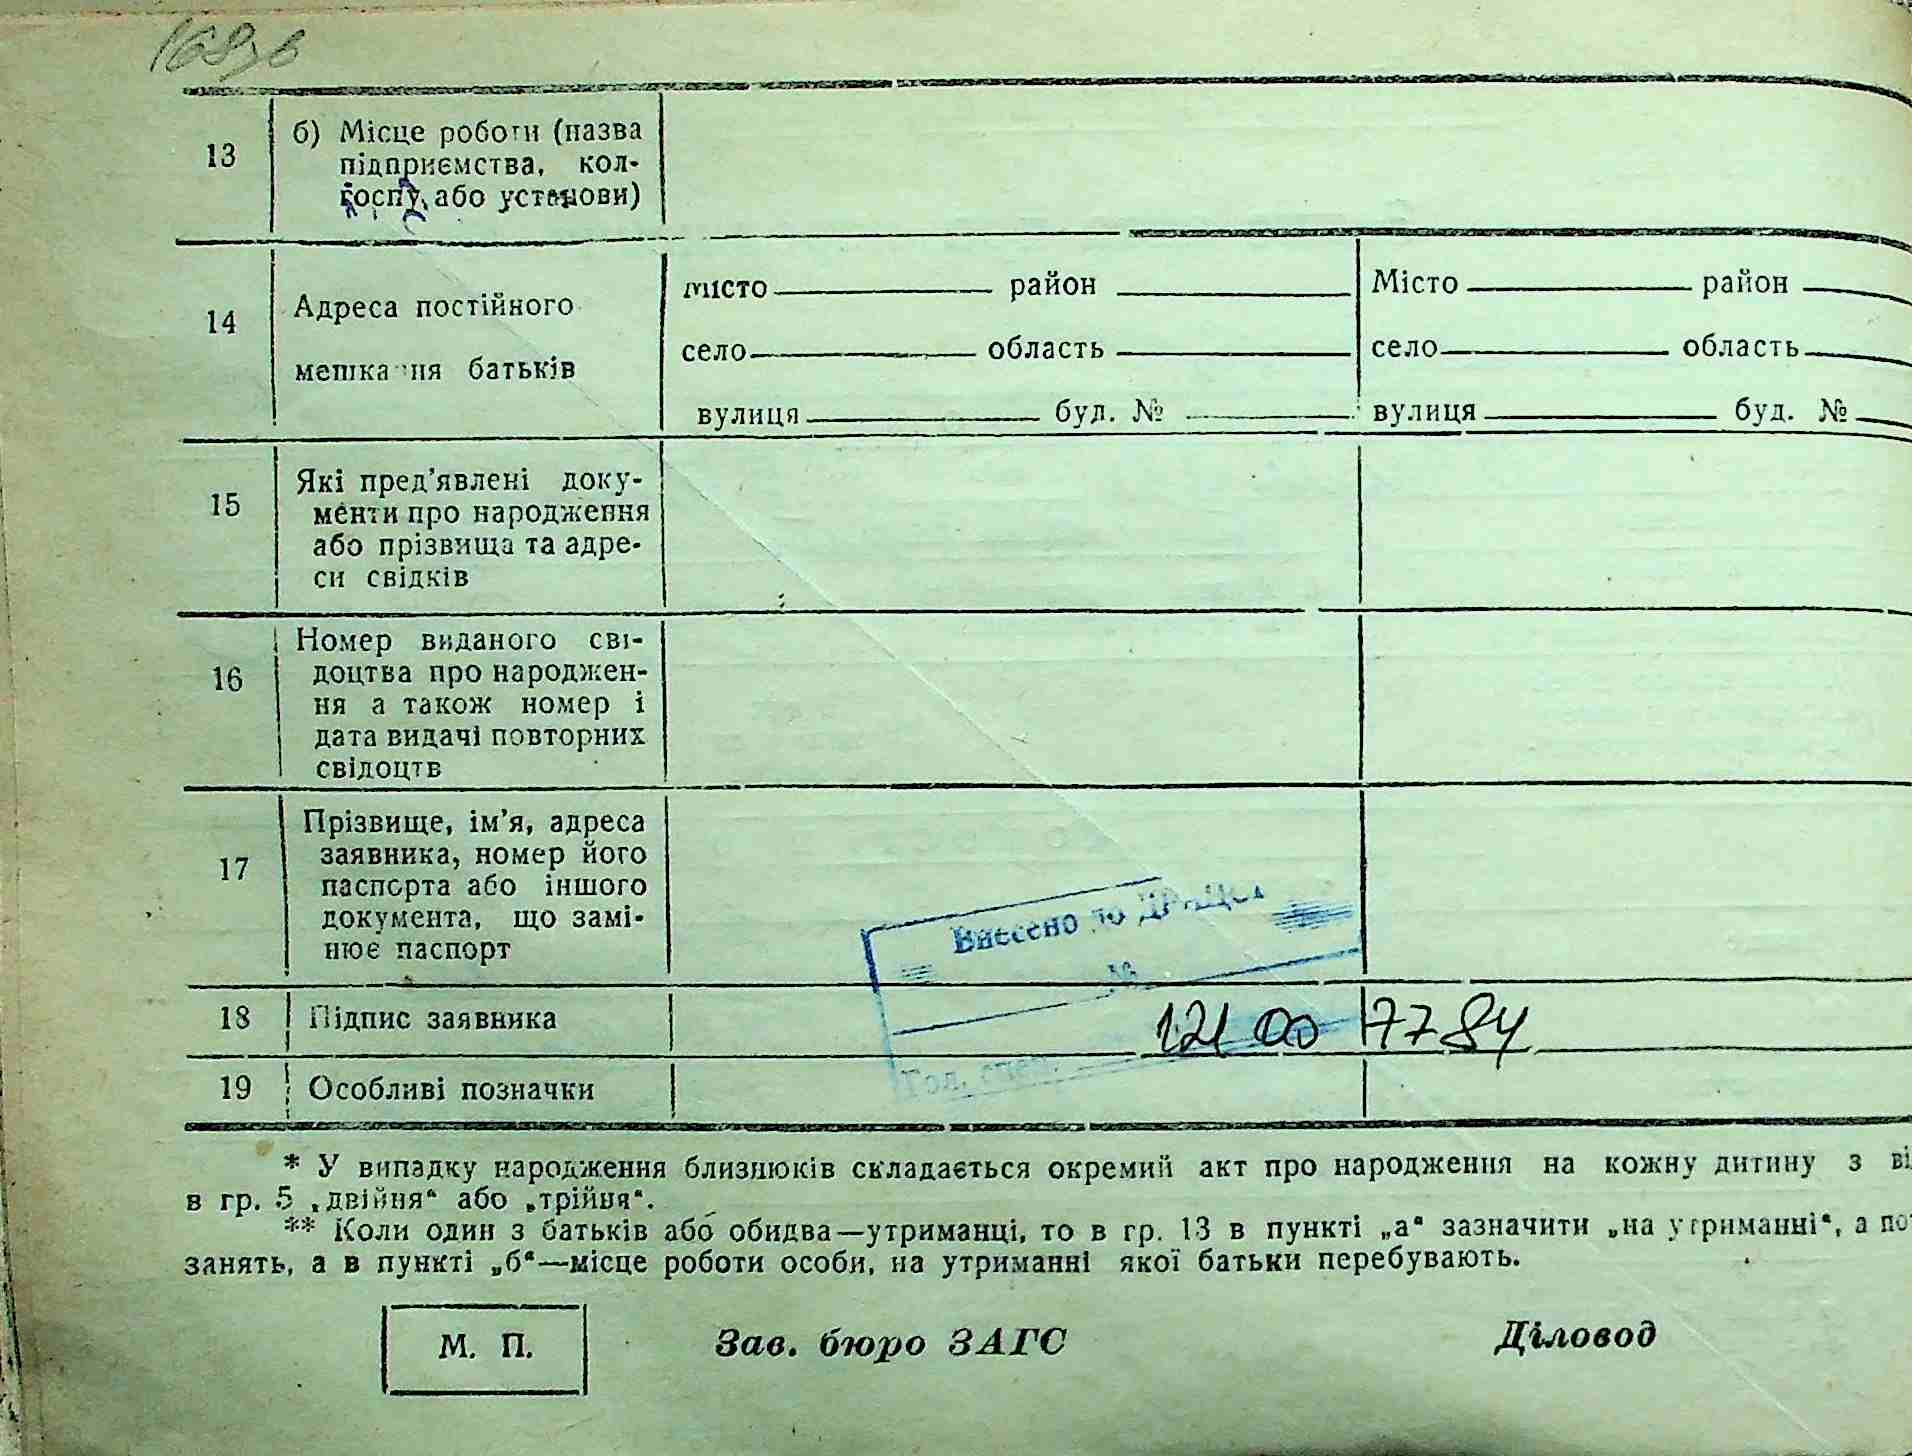 168зв
13 б) Місце роботи (назва
підприємства, кол-
госпу, або установи)
14 Адреса постійного
мешкання батьків
місто район Місто район
село область село область
вулиця буд. № вулиця буд. №
15 Які пред’явлені доку-
менти про народження
або прізвища та адре-
си свідків
16 Номер виданого сві-
доцтва про народжен-
ня а також номер і
дата видачі повторних
свідоцтв
17 Прізвище, ім’я, адреса
заявника, номер його
паспорта або іншого
документа, що замі-
нює паспорт
Внесено до ДРАЦСГ
№
18 Підпис заявника 121 00 7784
Гол. спец.
19 Особливі позначки
* У випадку народження близнюків складається окремий акт про народження на кожну дитину з ві
в гр. 5 „двійня“ або „трійня“.
** Коли один з батьків або обидва—утриманці, то в гр. 13 в пункті „а“ зазначити „на утриманні“, а по
занять, а в пункті „б“—місце роботи особи, на утриманні якої батьки перебувають.
М. П. Зав. бюро ЗАГС Діловод